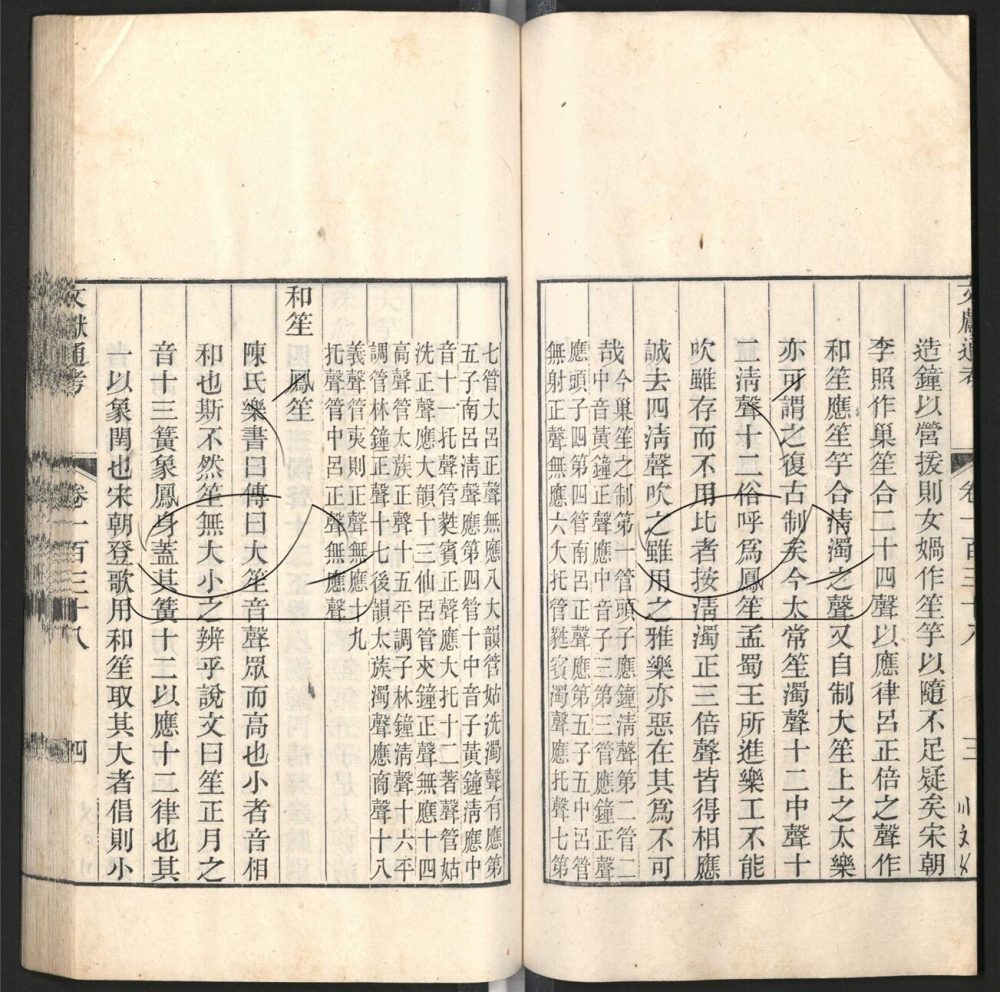 文獻通考 卷一百三十八 三
造鐘以營援則女媧作笙竽以隨不足疑矣宋朝
李照作巢笙合二十四聲以應律呂正倍之聲作
和笙應笙竽合清濁之聲又自制大笙上之太樂
亦可謂之復古制矣今太常笙濁聲十二中聲十
二清聲十二俗呼為鳳笙孟蜀王所進樂工不能
吹雖存而不用比者按清濁正三倍聲皆得相應
誠去四清聲吹之雖用之雅樂亦惡在其為不可
哉
今巢笙之制第一管頭子應鐘清聲第二管二
中音黃鐘正聲應中音子三第三管應鐘正聲
應頭子四第四管南呂正聲應第五子五中呂管
無射正聲無應六大托管蕤賓濁聲應托聲七第
七管大呂正聲無應八大韻管姑洗濁聲有應第
五子南呂清聲應第四管十中音子黃鐘清應中
音十一托聲管蕤賓正聲應大托十二著聲管姑
洗正聲應大韻十三仙呂管夾鐘正聲無應十四
高聲管太族正聲十五平調子林鐘清聲十六平
調管林鐘正聲十七後韻太族濁聲應商聲十八
義聲管夷則正聲無應十九
托聲管中呂正聲無應聲
和笙 鳳笙
陳氏樂書曰傳曰大笙音聲眾而高也小者音相
和也斯不然笙無大小之辨乎說文曰笙正月之
音十三簧象鳳身蓋其簧十二以應十二律也其
一以象閏也宋朝登歌用和笙取其大者倡則小
文獻通考 卷一百三十八 四